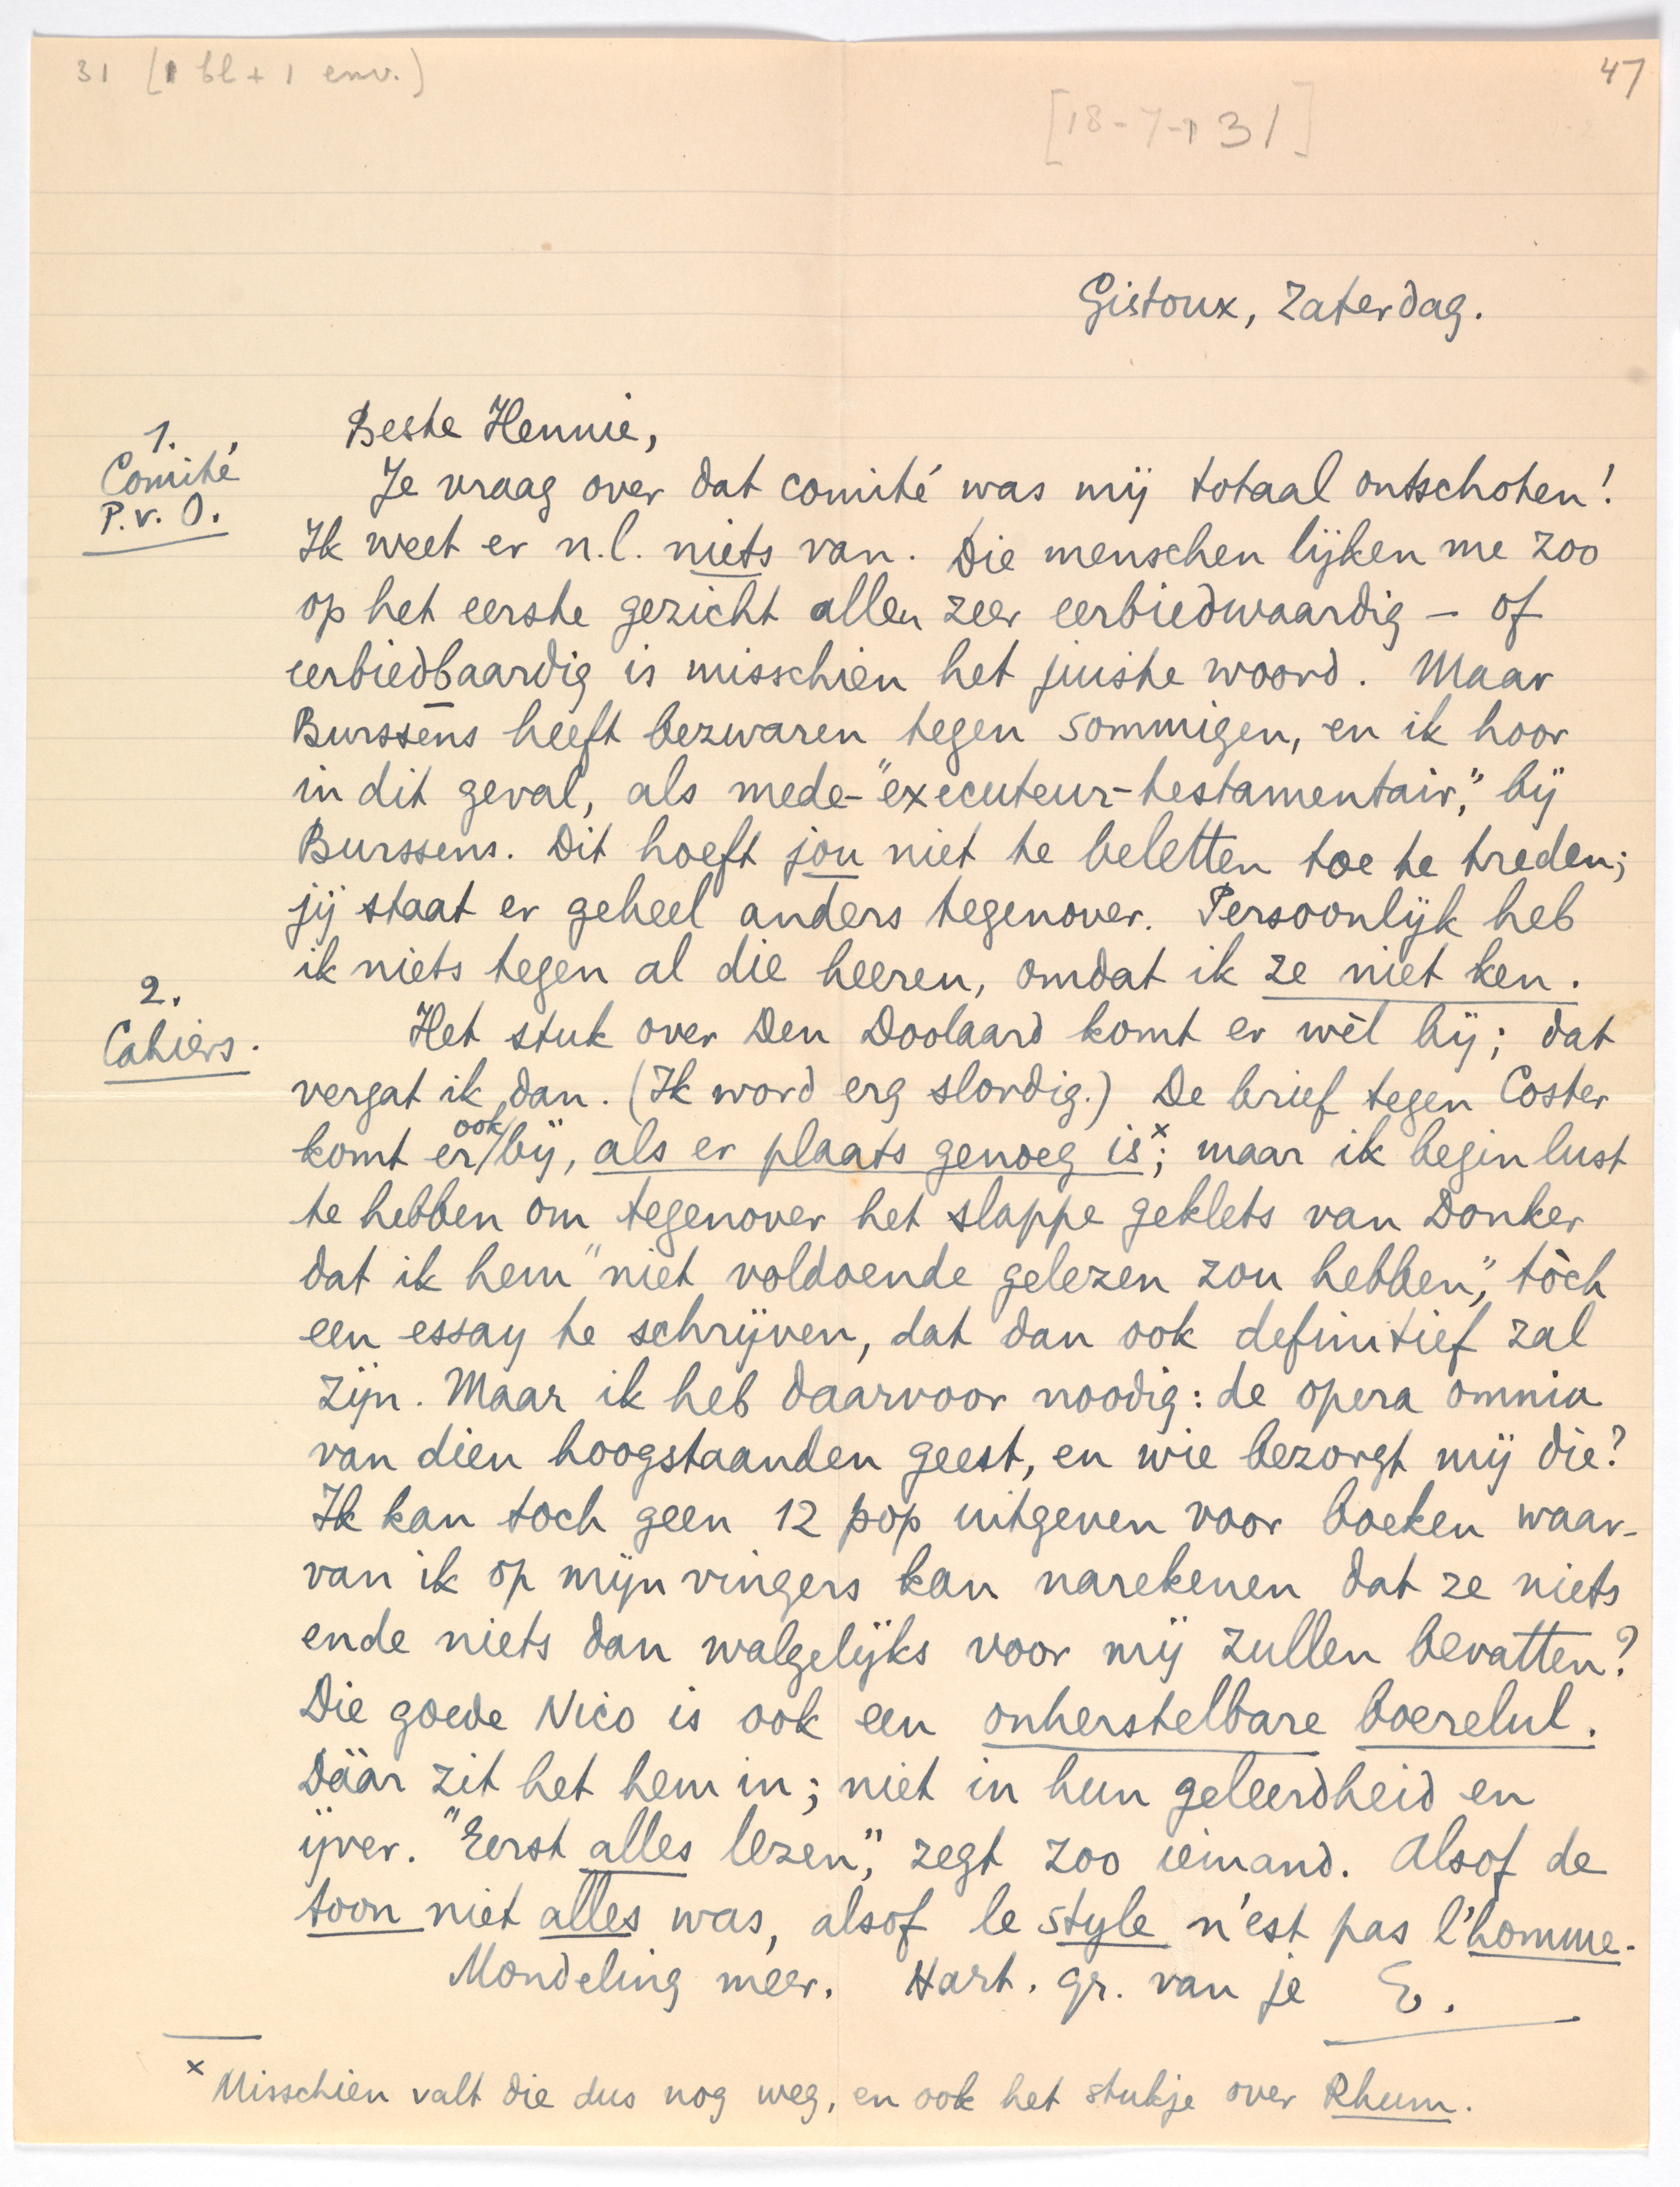 31 (1 bl + 1 env.)
47
[18-7-31]
Gistoux, Zaterdag.
Beste Hennie,
1.
Comité
P.v.O.
Je vraag over dat comité was mij totaal ontschoten!
Ik weet er n.l. niets van. Die menschen lijken me zoo
op het eerste gezicht allen zeer eerbiedwaardig – of
eerbiedbaardig is misschien het juiste woord. Maar
Burssens heeft bezwaren tegen sommigen, en ik hoor
in dit geval, als mede-"executeur-testamentair", bij
Burssens. Dit hoeft jou niet te beletten toe te treden;
jij staat er geheel anders tegenover. Persoonlijk heb
ik niets tegen al die heeren, omdat ik ze niet ken.
2.
Cahiers.
Het stuk over Den Doolaard komt er wèl bij; dat
vergat ik dan. (Ik word erg slordig.) De brief tegen Coster
komt er ook bij, als er plaats genoeg is×; maar ik begin lust
te hebben om tegenover het slappe geklets van Donker
dat ik hem "niet voldoende gelezen zou hebben", tòch
een essay te schrijven, dat dan ook definitief zal
zijn. Maar ik heb daarvoor noodig: de opera omnia
van dien hoogstaanden geest, en wie bezorgt mij die?
Ik kan toch geen 12 pop uitgeven voor boeken waar-
van ik op mijn vingers kan narekenen dat ze niets
ende niets dan walgelijks voor mij zullen bevatten?
Die goede Nico is ook een onherstelbare boerelul.
Dáár zit het hem in; niet in hun geleerdheid en
ijver. "Eerst alles lezen", zegt zoo iemand. Alsof de
toon niet alles was, alsof le style n'est pas l'homme.
Mondeling meer. Hart. gr. van je E.
× Misschien valt die dus nog weg, en ook het stukje over Rhum.